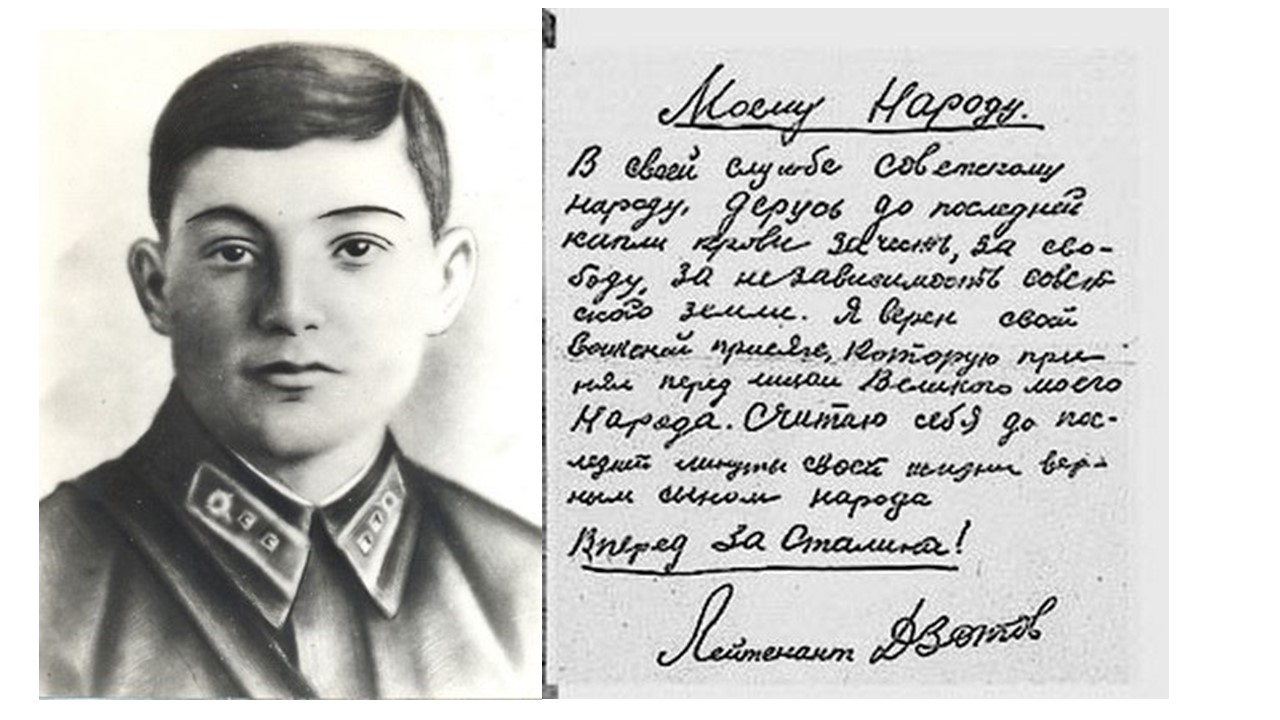 Моему Народу.
В своей службе советскому
народу, дерусь до последней
капли крови за честь, за сво-
боду, за независимость совет-
ской земли. Я верен своей
воинской присяге, которую при-
нял перед лицом Великого моего
Народа. Считаю себя до пос-
ледней минуты своей жизни вер-
ным сыном народа
Вперед за Сталина!
Лейтенант